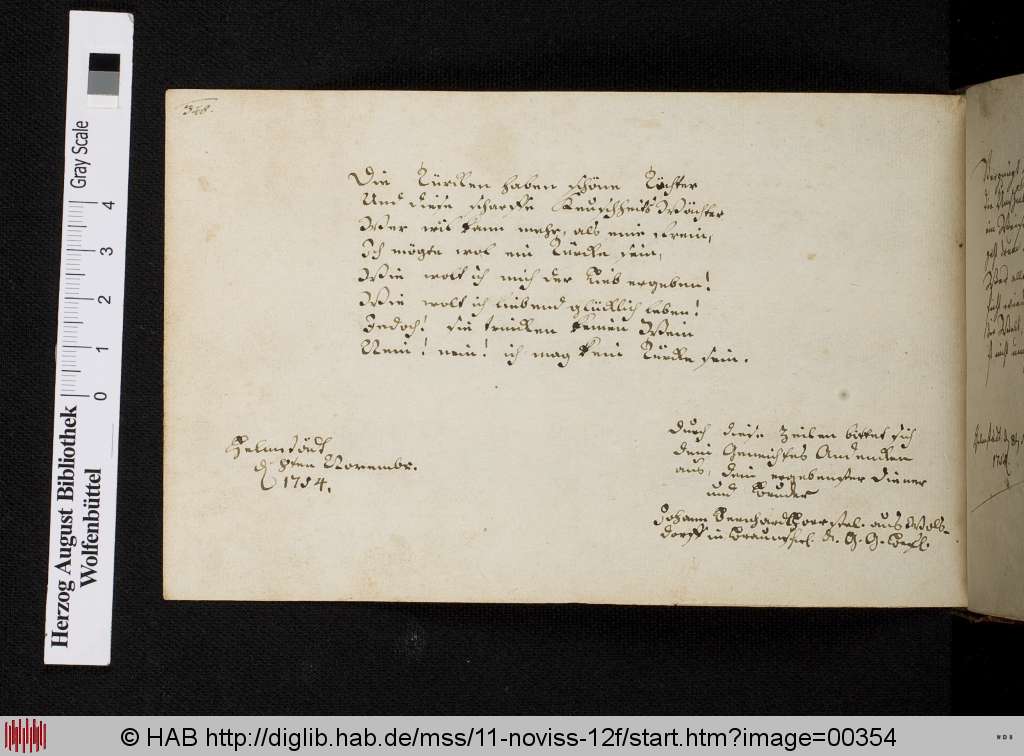 348.
Die Türcken haben schöne Töchter
Und diese scharffe Keuschheits Wächter
Wer wil kann mehr, als eine frein,
Ich mögte wol ein Türcke sein,
Wie wolt ich mich der Lieb ergeben!
Wie wolt ich liebend glücklich leben!
Jedoch! sie trincken keinen Wein
Nein! nein! ich mag kein Türcke sein.
Helmstädt
d 8ten Novembr.
1754.
Durch diese Zeilen bittet sich
dein geneichtes Andencken
aus, dein ergebenster Diener
und Bruder
Johann Bernhard aus Wols-
dorff in d. G. G.
1754
Herzog August Bibliothek
Wolfenbüttel
Gray Scale
0 1 2 3 4
© HAB http://diglib.hab.de/mss/11-noviss-12f/start.htm?image=00354
WDB